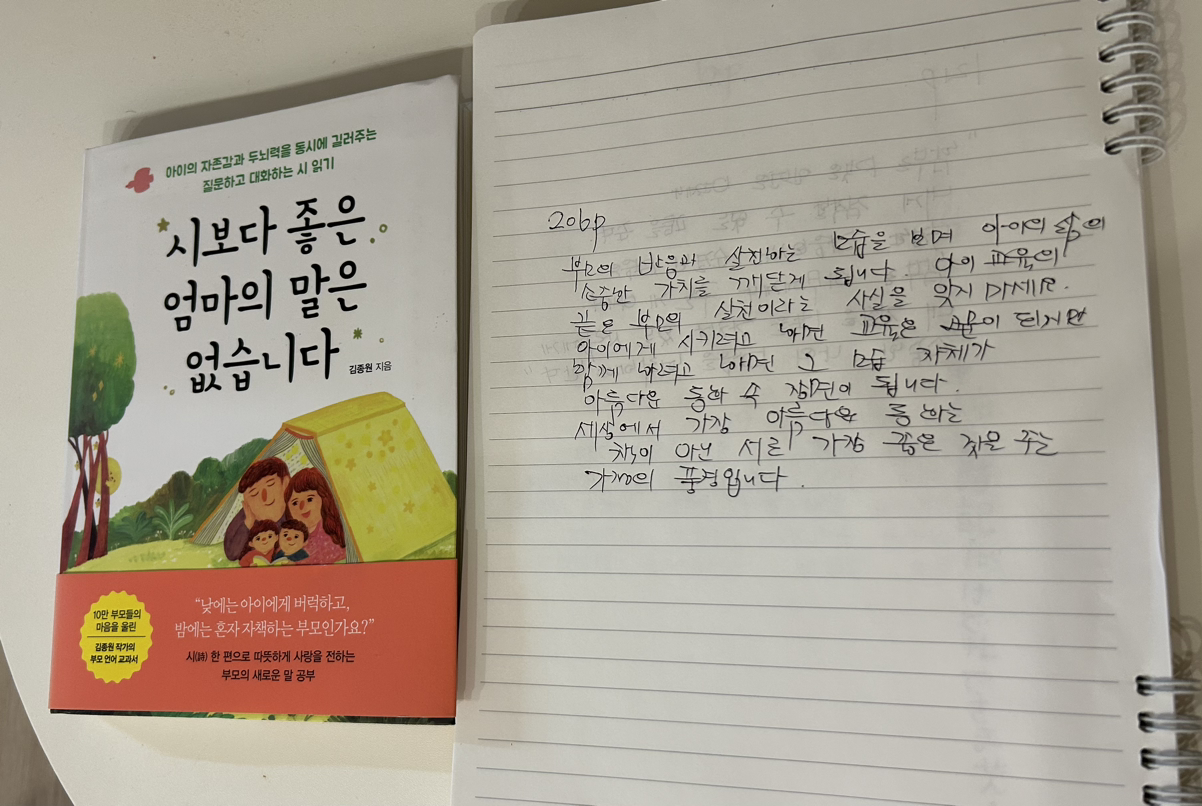 아이의 자존감과 두뇌력을 동시에 길러주는
질문하고 대화하는 시 읽기
시보다 좋은
엄마의 말은
없습니다
김종원 지음
10만 부모들의
마음을 울린
김종원 작가의
부모 언어 교과서
“낮에는 아이에게 버럭하고,
밤에는 혼자 자책하는 부모인가요?”
시(詩) 한 편으로 따뜻하게 사랑을 전하는
부모의 새로운 말 공부
206p
부모의 믿음과 실천하는 모습을 보며 아이의 삶의
소중한 가치를 깨닫게 됩니다. 아이 교육의
끝은 부모의 실천이라는 사실을 잊지 마세요.
아이에게 시키려고 하면 교육은 소문이 되지만
함께 하려고 하면 그 모습 자체가
아름다운 동화 속 장면이 됩니다.
세상에서 가장 아름다운 동화는
책이 아닌 서로 가장 꿈은 주는
가정의 풍경입니다.